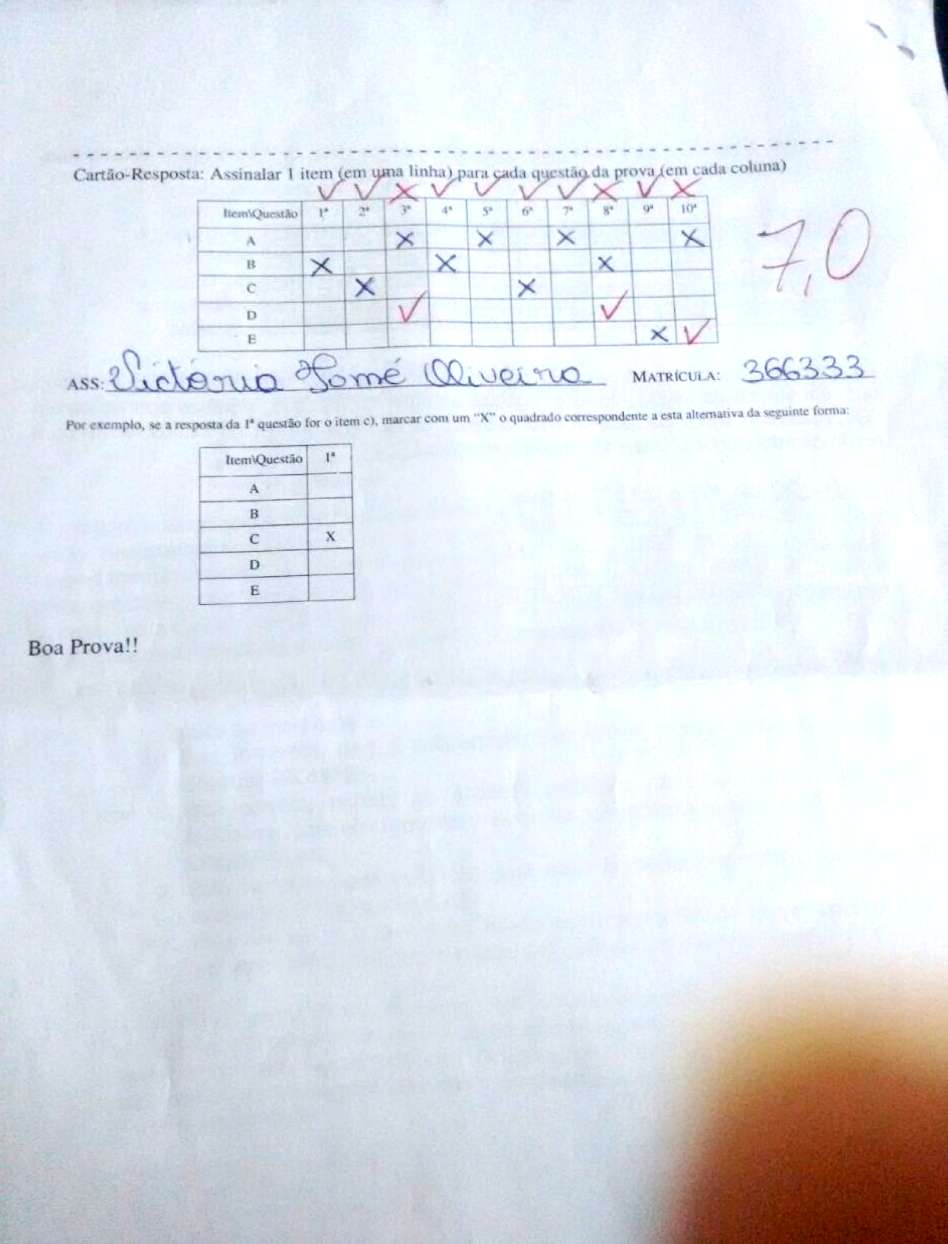 Cartão-Resposta: Assinalar 1 item (em uma linha) para cada questão da prova (em cada coluna)
Item\Questão 1ª 2ª 3ª 4ª 5ª 6ª 7ª 8ª 9ª 10ª
A X X X X
B X X X
C X X
D
E X
7,0
ASS: Victória Tomé Oliveira MATRÍCULA: 366333
Por exemplo, se a resposta da 1ª questão for o item c), marcar com um "X" o quadrado correspondente a esta alternativa da seguinte forma:
Item\Questão 1ª
A
B
C X
D
E
Boa Prova!!